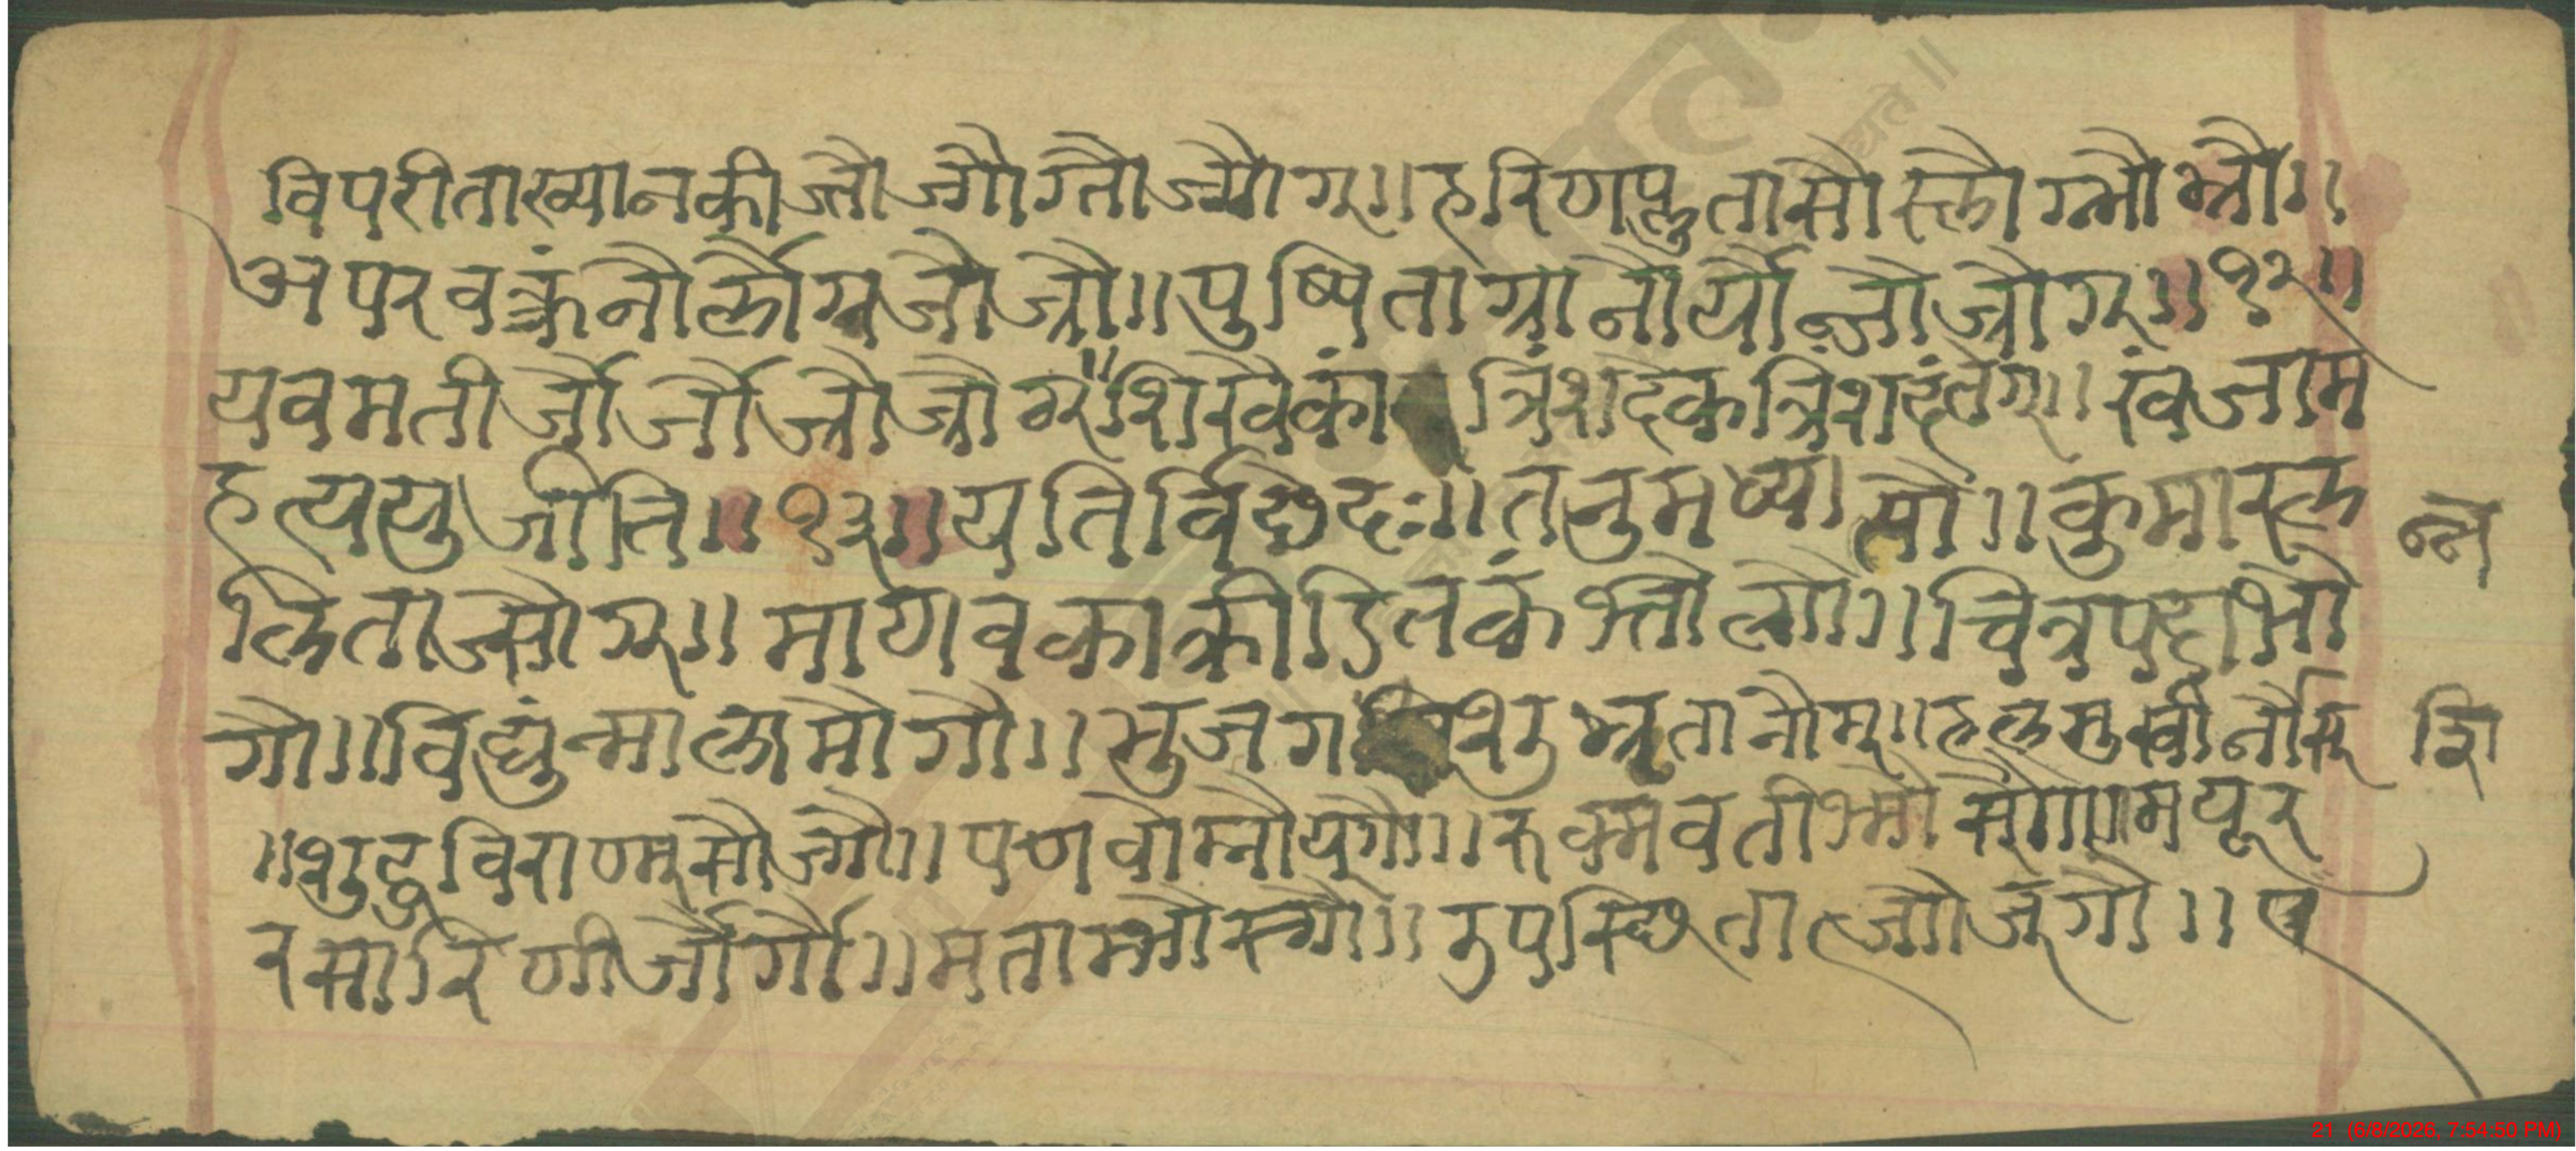 विपरीताख्यानकीज्तौज्गौग्तौज्गौग्॥हरिणप्लुतासौस्लौग्न्भौभ्रौ॥
अपरवक्त्रंनौर्लौग्नजौज्रौ॥पुष्पिताग्रानौर्यौन्जौज्रौग्॥१२॥
यवमतीर्जौर्जौज्रौज्रौग्॥शिखैकां त्रिंशदेकत्रिंशदंतेग्॥खंजाम
हत्ययुजीति॥१३॥यतिर्विछेदः॥तनुमध्यांत्यौ॥कुमारल
लिताज्सौग्॥माणवकाक्रीडितकंभ्तौल्गौ॥चित्रपदाभौ
गौ॥विद्युंन्मालामौगौ॥भुजग शिशुभृतानौम्॥हलमुखीर्नौस्
॥शुद्धविराण्म्सौज्गौ॥पणवोम्नौय्गौ॥रुक्मवतीभ्मौस्गौ॥मयूर
रसारिणीर्जौर्गौ॥मताम्भौस्गौ॥उपस्छितात्जौज्गौ॥ए